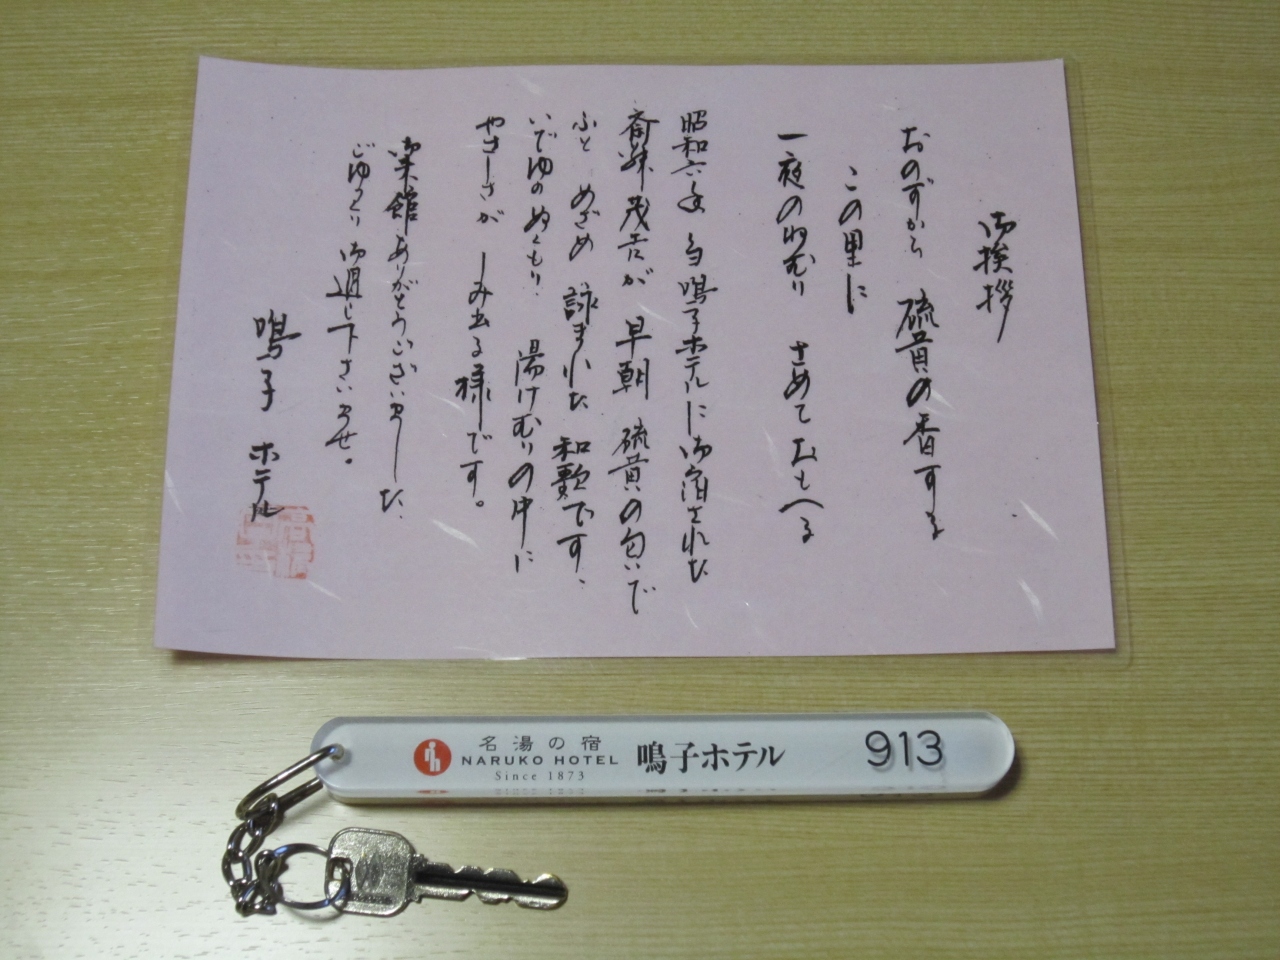 御挨拶
おのずから 硫黄の香する
この里に
一夜のねむり さめておもへる
昭和六年 当鳴子ホテルに御宿された
斎藤茂吉が 早朝 硫黄の匂いで
ふと めざめ 詠まれた 和歌です、
いでゆのぬくもり 湯けむりの中に
やさしさが しみ出る様です。
御来館ありがとうございました
ごゆっくり 御過し下さいませ。
鳴子ホテル
名湯の宿
NARUKO HOTEL
Since 1873
鳴子ホテル
913